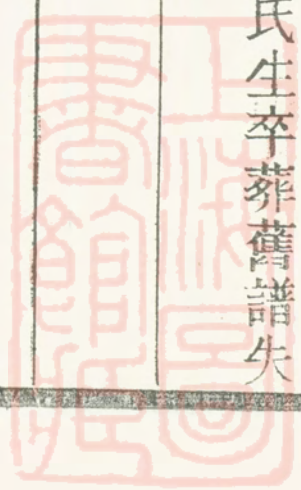 氏生卒葬舊譜失
上海圖
書館藏